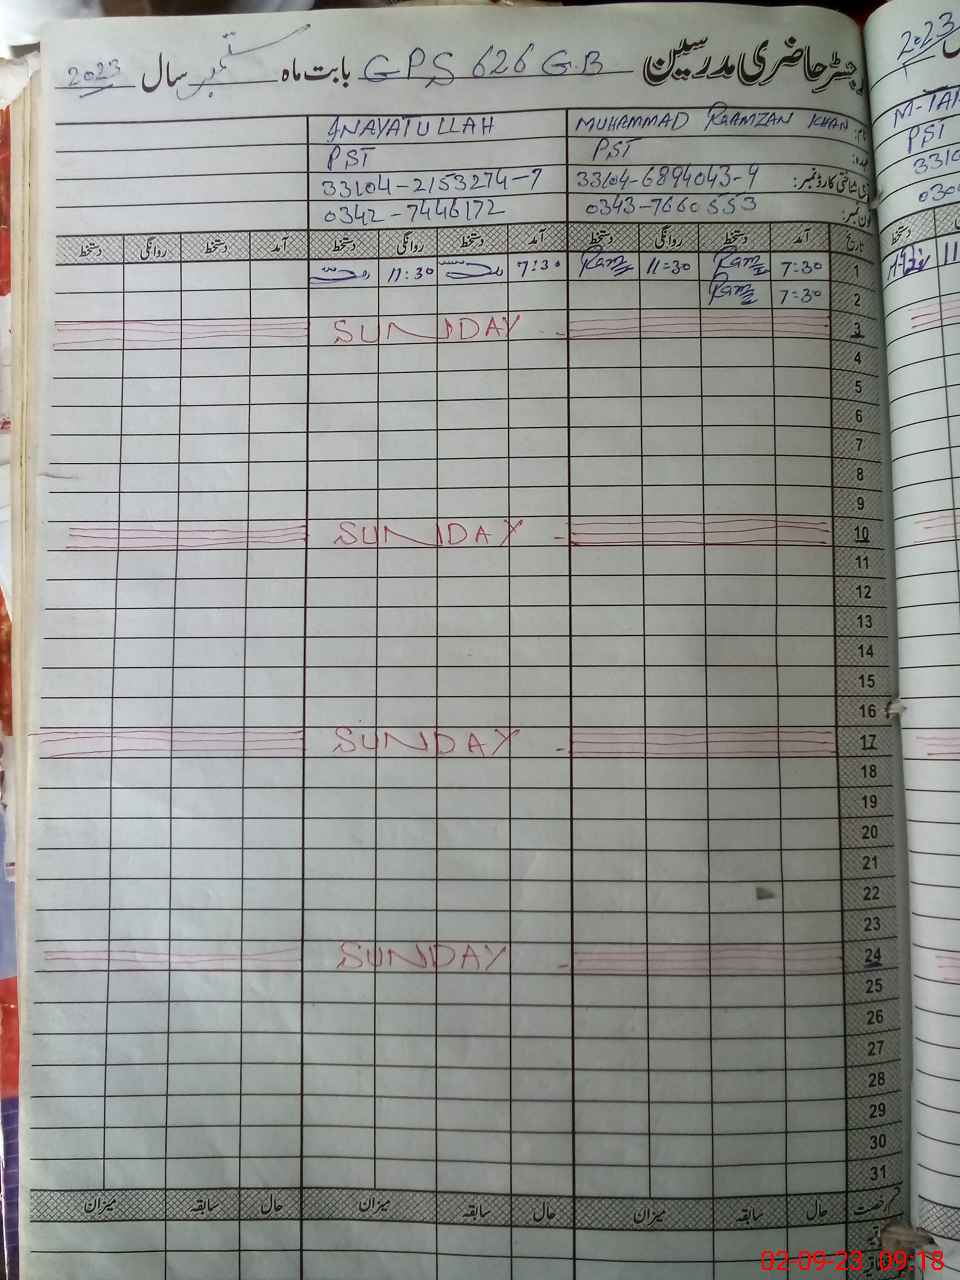 رجسٹر حاضری مدرسین GPS 626 GB بابت ماہ ستمبر سال 2023
نام: MUHAMMAD RAMZAN KHAN INAYATULLAH
عہدہ: PST PST
شناختی کارڈ نمبر: 33104-6894043-9 33104-2153274-7
فون نمبر: 0343-7660553 0342-7446172
تاریخ آمد دستخط روانگی دستخط آمد دستخط روانگی دستخط آمد دستخط روانگی دستخط
1 7:30 Ramz 11=30 Ramz 7:30 11:30
2 7=30 Ramz
3 SUNDAY
4
5
6
7
8
9
10 SUNDAY
11
12
13
14
15
16
17 SUNDAY
18
19
20
21
22
23
24 SUNDAY
25
26
27
28
29
30
31
رخصت حال سابقہ میزان حال سابقہ میزان حال سابقہ میزان
2023
M-TAR
PST
3310
030
دستخط
11
02-09-23 09:18